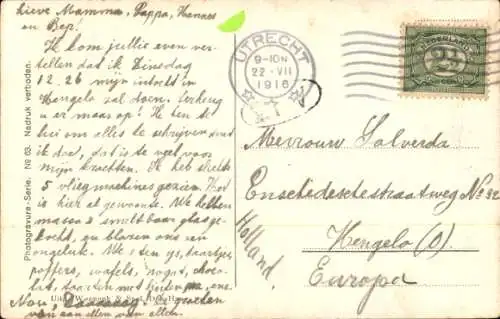 Lieve Mamma, Pappa, Hannes
en Bep!
Ik kom jullie even ver-
tellen dat ik Dinsdag
12.26 mijn intocht in
Hengelo zal doen.
u er maar op! Ik ben te
lui om alles te schrijven wat
ik doe, dat is te veel voor
mijn krachten. Ik heb slechts
5 vliegmachines gezien.
is hier al gewoonte. We hebben
massa's smeltbaar glas ge-
kocht, en blazen ons een
ongeluk. We eten ijs, taartjes,
poffers, wafels, nogat, choco-
la, taarten met
Nou, de groeten
van allen voor allen.
Photogravure-Serie. No 63. Nadruk verboden.
UTRECHT
9-10N
22-VII
1916
NEDERLAND
2½
Mevrouw Salverda
Enschedeschestraatweg No 32
Hengelo (O.)
Holland.
Europa